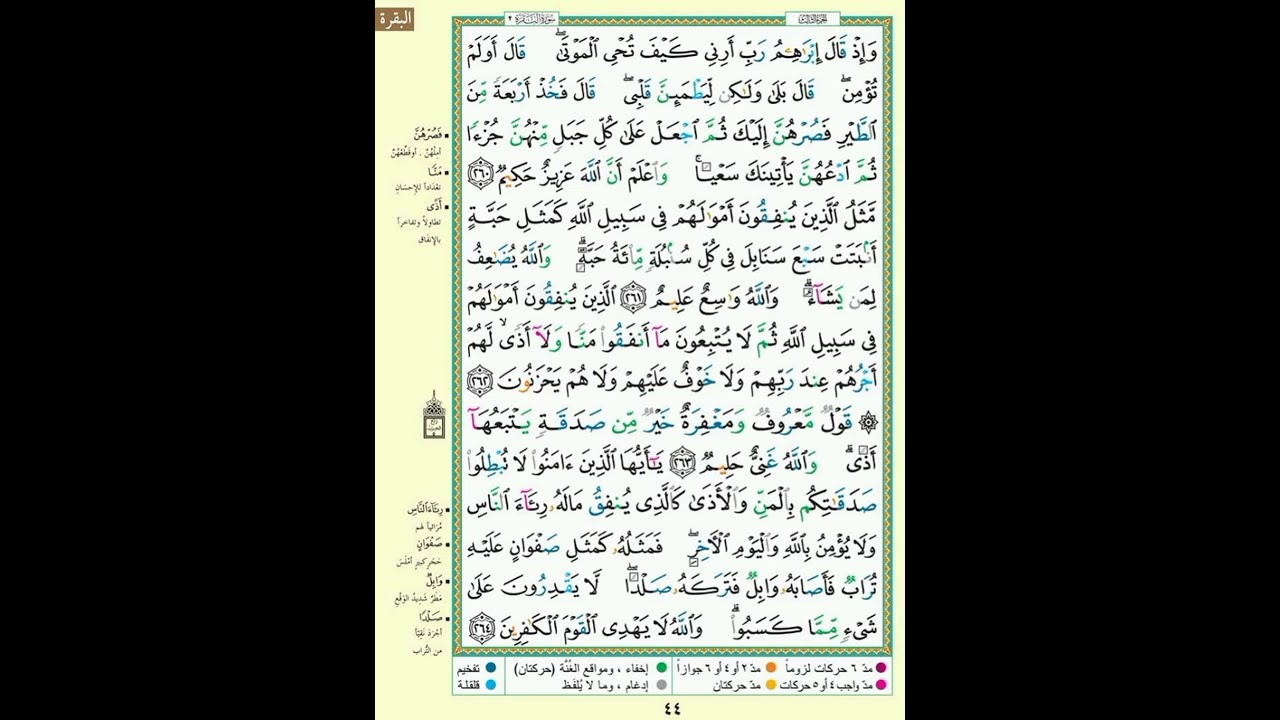 البقرة
سورة البقرة ٢
الجزء الثالث
وَإِذْ قَالَ إِبْرَٰهِـۧمُ رَبِّ أَرِنِى كَيْفَ تُحْىِ ٱلْمَوْتَىٰ ۖ قَالَ أَوَلَمْ
تُؤْمِن ۖ قَالَ بَلَىٰ وَلَـٰكِن لِّيَطْمَئِنَّ قَلْبِى ۖ قَالَ فَخُذْ أَرْبَعَةً مِّنَ
ٱلطَّيْرِ فَصُرْهُنَّ إِلَيْكَ ثُمَّ ٱجْعَلْ عَلَىٰ كُلِّ جَبَلٍ مِّنْهُنَّ جُزْءًا
ثُمَّ ٱدْعُهُنَّ يَأْتِينَكَ سَعْيًا ۚ وَٱعْلَمْ أَنَّ ٱللَّهَ عَزِيزٌ حَكِيمٌ ٢٦٠
مَّثَلُ ٱلَّذِينَ يُنفِقُونَ أَمْوَٰلَهُمْ فِى سَبِيلِ ٱللَّهِ كَمَثَلِ حَبَّةٍ
أَنۢبَتَتْ سَبْعَ سَنَابِلَ فِى كُلِّ سُنۢبُلَةٍ مِّا۟ئَةُ حَبَّةٍ ۗ وَٱللَّهُ يُضَـٰعِفُ
لِمَن يَشَآءُ ۗ وَٱللَّهُ وَٰسِعٌ عَلِيمٌ ٢٦١ ٱلَّذِينَ يُنفِقُونَ أَمْوَٰلَهُمْ
فِى سَبِيلِ ٱللَّهِ ثُمَّ لَا يُتْبِعُونَ مَآ أَنفَقُوا۟ مَنًّا وَلَآ أَذًى ۙ لَّهُمْ
أَجْرُهُمْ عِندَ رَبِّهِمْ وَلَا خَوْفٌ عَلَيْهِمْ وَلَا هُمْ يَحْزَنُونَ ٢٦٢
۞ قَوْلٌ مَّعْرُوفٌ وَمَغْفِرَةٌ خَيْرٌ مِّن صَدَقَةٍ يَتْبَعُهَآ
أَذًى ۗ وَٱللَّهُ غَنِىٌّ حَلِيمٌ ٢٦٣ يَـٰٓأَيُّهَا ٱلَّذِينَ ءَامَنُوا۟ لَا تُبْطِلُوا۟
صَدَقَـٰتِكُم بِٱلْمَنِّ وَٱلْأَذَىٰ كَٱلَّذِى يُنفِقُ مَالَهُۥ رِئَآءَ ٱلنَّاسِ
وَلَا يُؤْمِنُ بِٱللَّهِ وَٱلْيَوْمِ ٱلْـَٔاخِرِ ۖ فَمَثَلُهُۥ كَمَثَلِ صَفْوَانٍ عَلَيْهِ
تُرَابٌ فَأَصَابَهُۥ وَابِلٌ فَتَرَكَهُۥ صَلْدًا ۖ لَّا يَقْدِرُونَ عَلَىٰ
شَىْءٍ مِّمَّا كَسَبُوا۟ ۗ وَٱللَّهُ لَا يَهْدِى ٱلْقَوْمَ ٱلْكَـٰفِرِينَ ٢٦٤
فَصُرْهُنَّ
أمِلْهُنّ . أوقطّعْهُنّ
مَنًّا
تعْدَاداً للإحسَانِ
أَذًى
تطاولاً وتفاخراً
بالإنفَاق
ربع الحزب
رِئَآءَ ٱلنَّاسِ
مُرَائياً لهم
صَفْوَانٍ
حَجَرٍ كبيرٍ أمْلَسَ
وَابِلٌ
مَطَرٌ شَدِيدُ الوَقْعِ
صَلْدًا
أجْرَدَ نَقِيّاً
من التُّراب
مدّ ٦ حركات لزوماً
مدّ ٢ أو ٤ أو ٦ جوازاً
إخفاء ، ومواقع الغُنَّة (حركتان)
تفخيم
مدّ واجب ٤ أو ٥ حركات
مدّ حركتان
إدغام ، وما لا يُلفَظ
قلقلة
٤٤